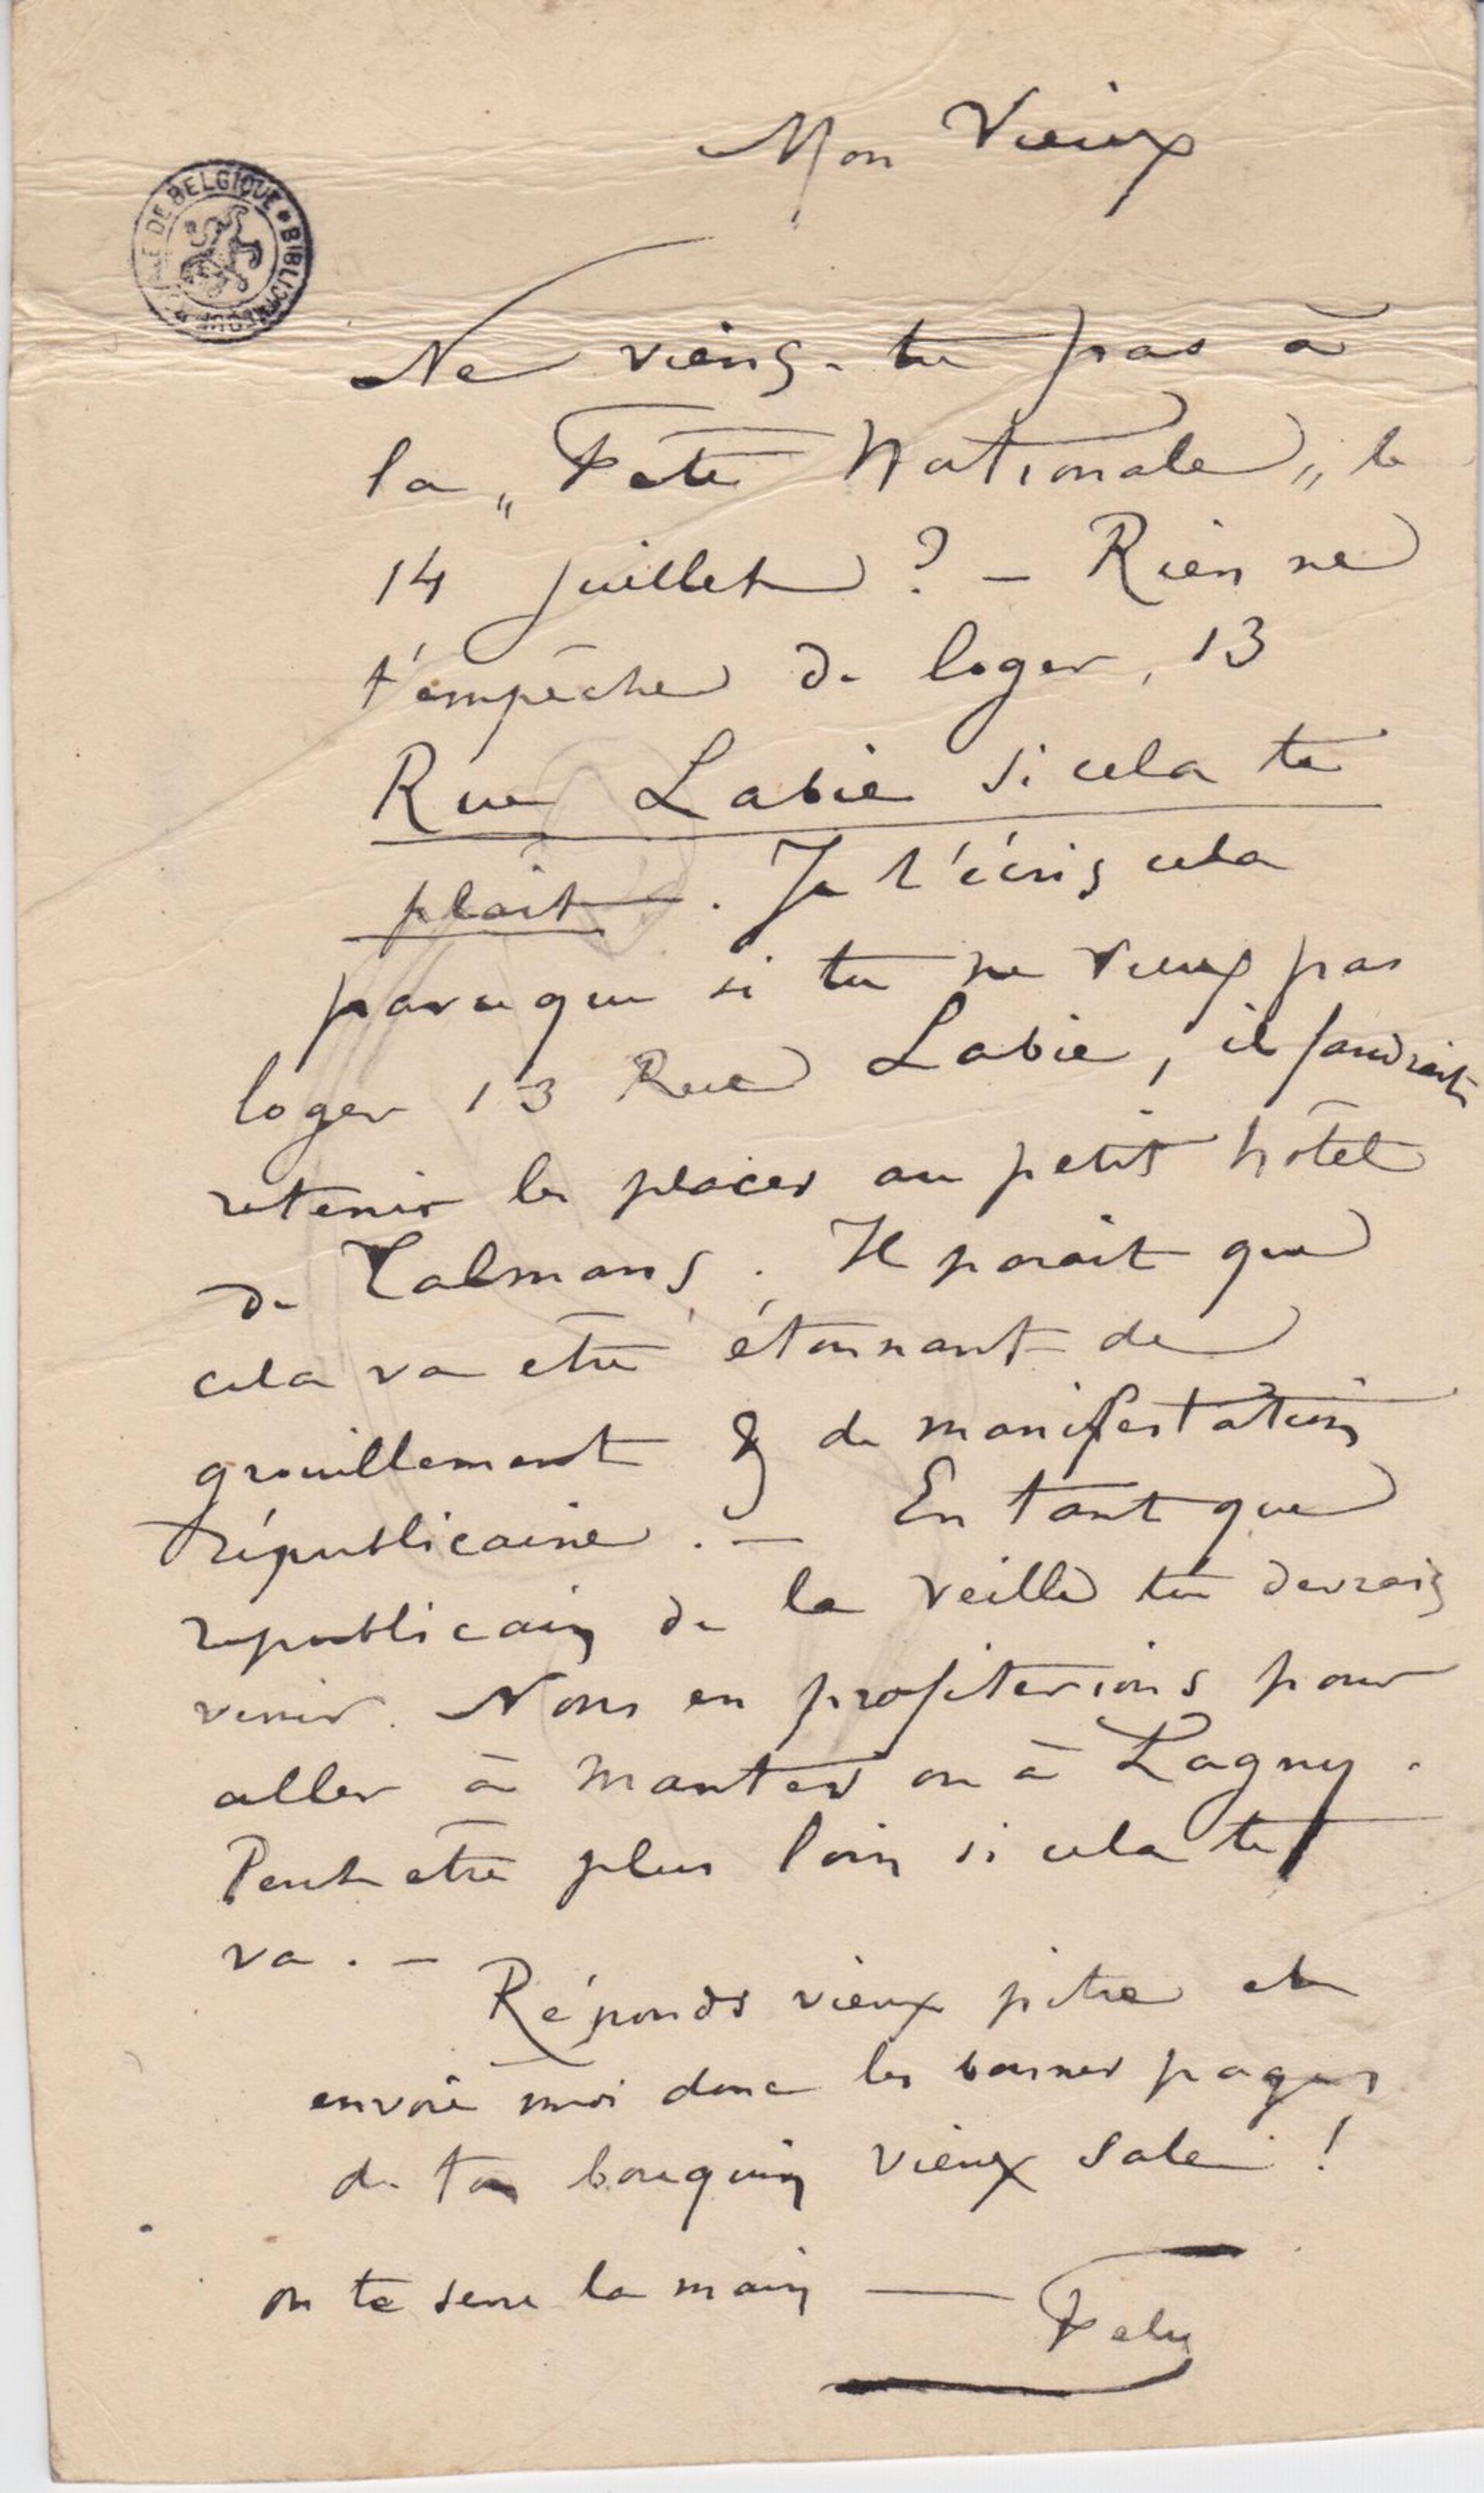 Mon Vieux
DE BELGIQUE * BIBLIOTHEQUE
Ne viens-tu pas à
la „Fête Nationale„ le
14 juillet ? – Rien ne
t'empêche de loger, 13
Rue Labie si cela te
plait. Je t'écris cela
parceque si tu ne veux pas
loger 13 Rue Labie, il faudrait
retenir les places au petit hôtel
de Talmans. Il parait que
cela va etre étonnant de
grouillement & de manifestation
républicaine. – En tant que
republicain de la veille tu devrais
venir. Nous en profiterions pour
aller à Mantes ou à Lagny.
Peut etre plus loin si cela te
va. –
Réponds vieux pitre et
envoie moi donc les bonnes pages
de ton bouquin vieux sale !
on te serre la main — Fely